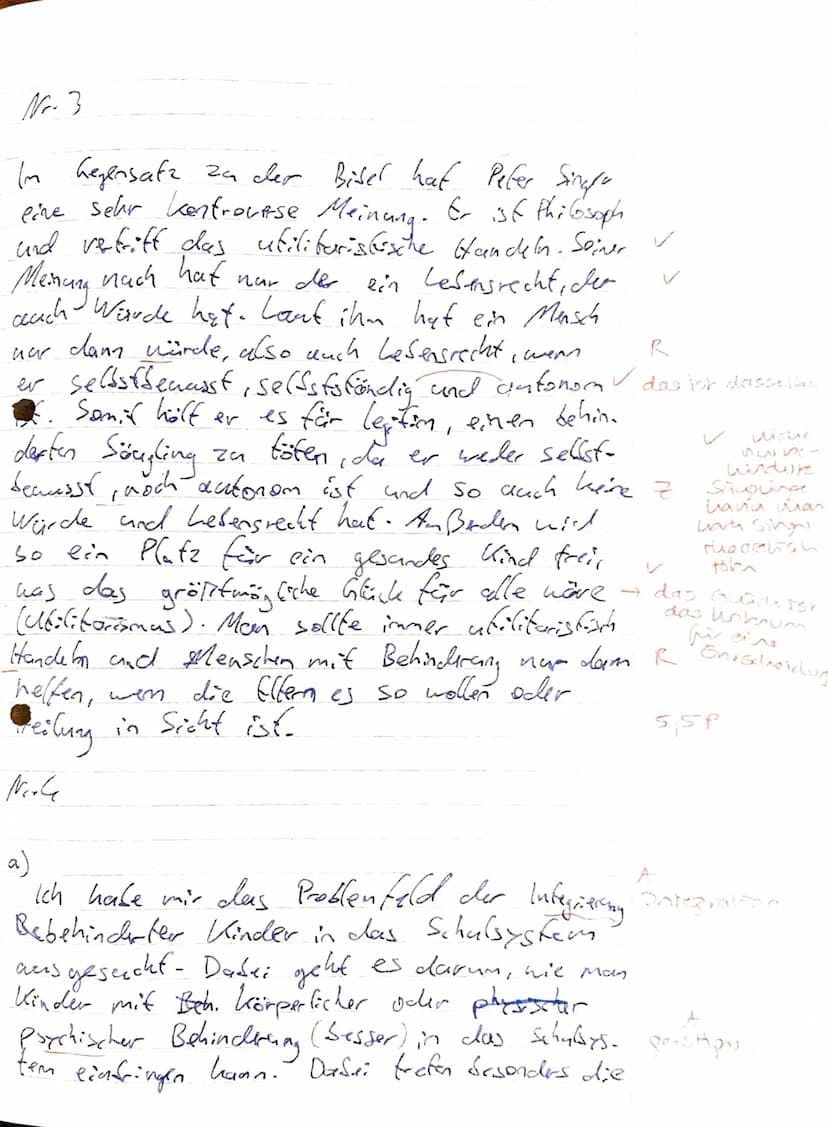 Nr. 3
Im Gegensatz zu der Bibel hat Peter Singer
eine sehr kontroverse Meinung. Er ist Philosoph
und vertritt das utilitaristische Handeln. Seiner ✓
Meinung nach hat nur der ein Lebensrecht, der ✓
auch Würde hat. Laut ihm hat ein Mensch
nur dann würde, also auch Lebensrecht, wenn R
er selbstbewusst, selbstständig und autonom ✓ das ist dasselbe
ist. Somit hält er es für legitim, einen behin-
derten Säugling zu töten, da er weder selbst- ✓ nicht nur be-
bewusst, noch autonom ist und so auch keine Z hinderte Säuglinge
Würde und Lebensrecht hat. Außerdem wird kann man nach Singer
so ein Platz für ein gesundes Kind frei, theoretisch
was das größtmögliche Glück für alle wäre ✓ töten → das Glück ist
(Utilitarismus). Man sollte immer utilitaristisch das Kriterium für eine
Handeln und Menschen mit Behinderung nur dann R Entscheidung
helfen, wenn die Eltern es so wollen oder
Heilung in Sicht ist. 5,5P
Nr. 4
a)
Ich habe mir das Problemfeld der Integrierung A Integration
Bebehinderter Kinder in das Schulsystem
ausgesucht. Dabei geht es darum, wie man
Kinder mit Beh. körperlicher oder physischer
psychischer Behinderung (besser) in das Schulsys-
tem einbringen kann. Dabei treten besonders die